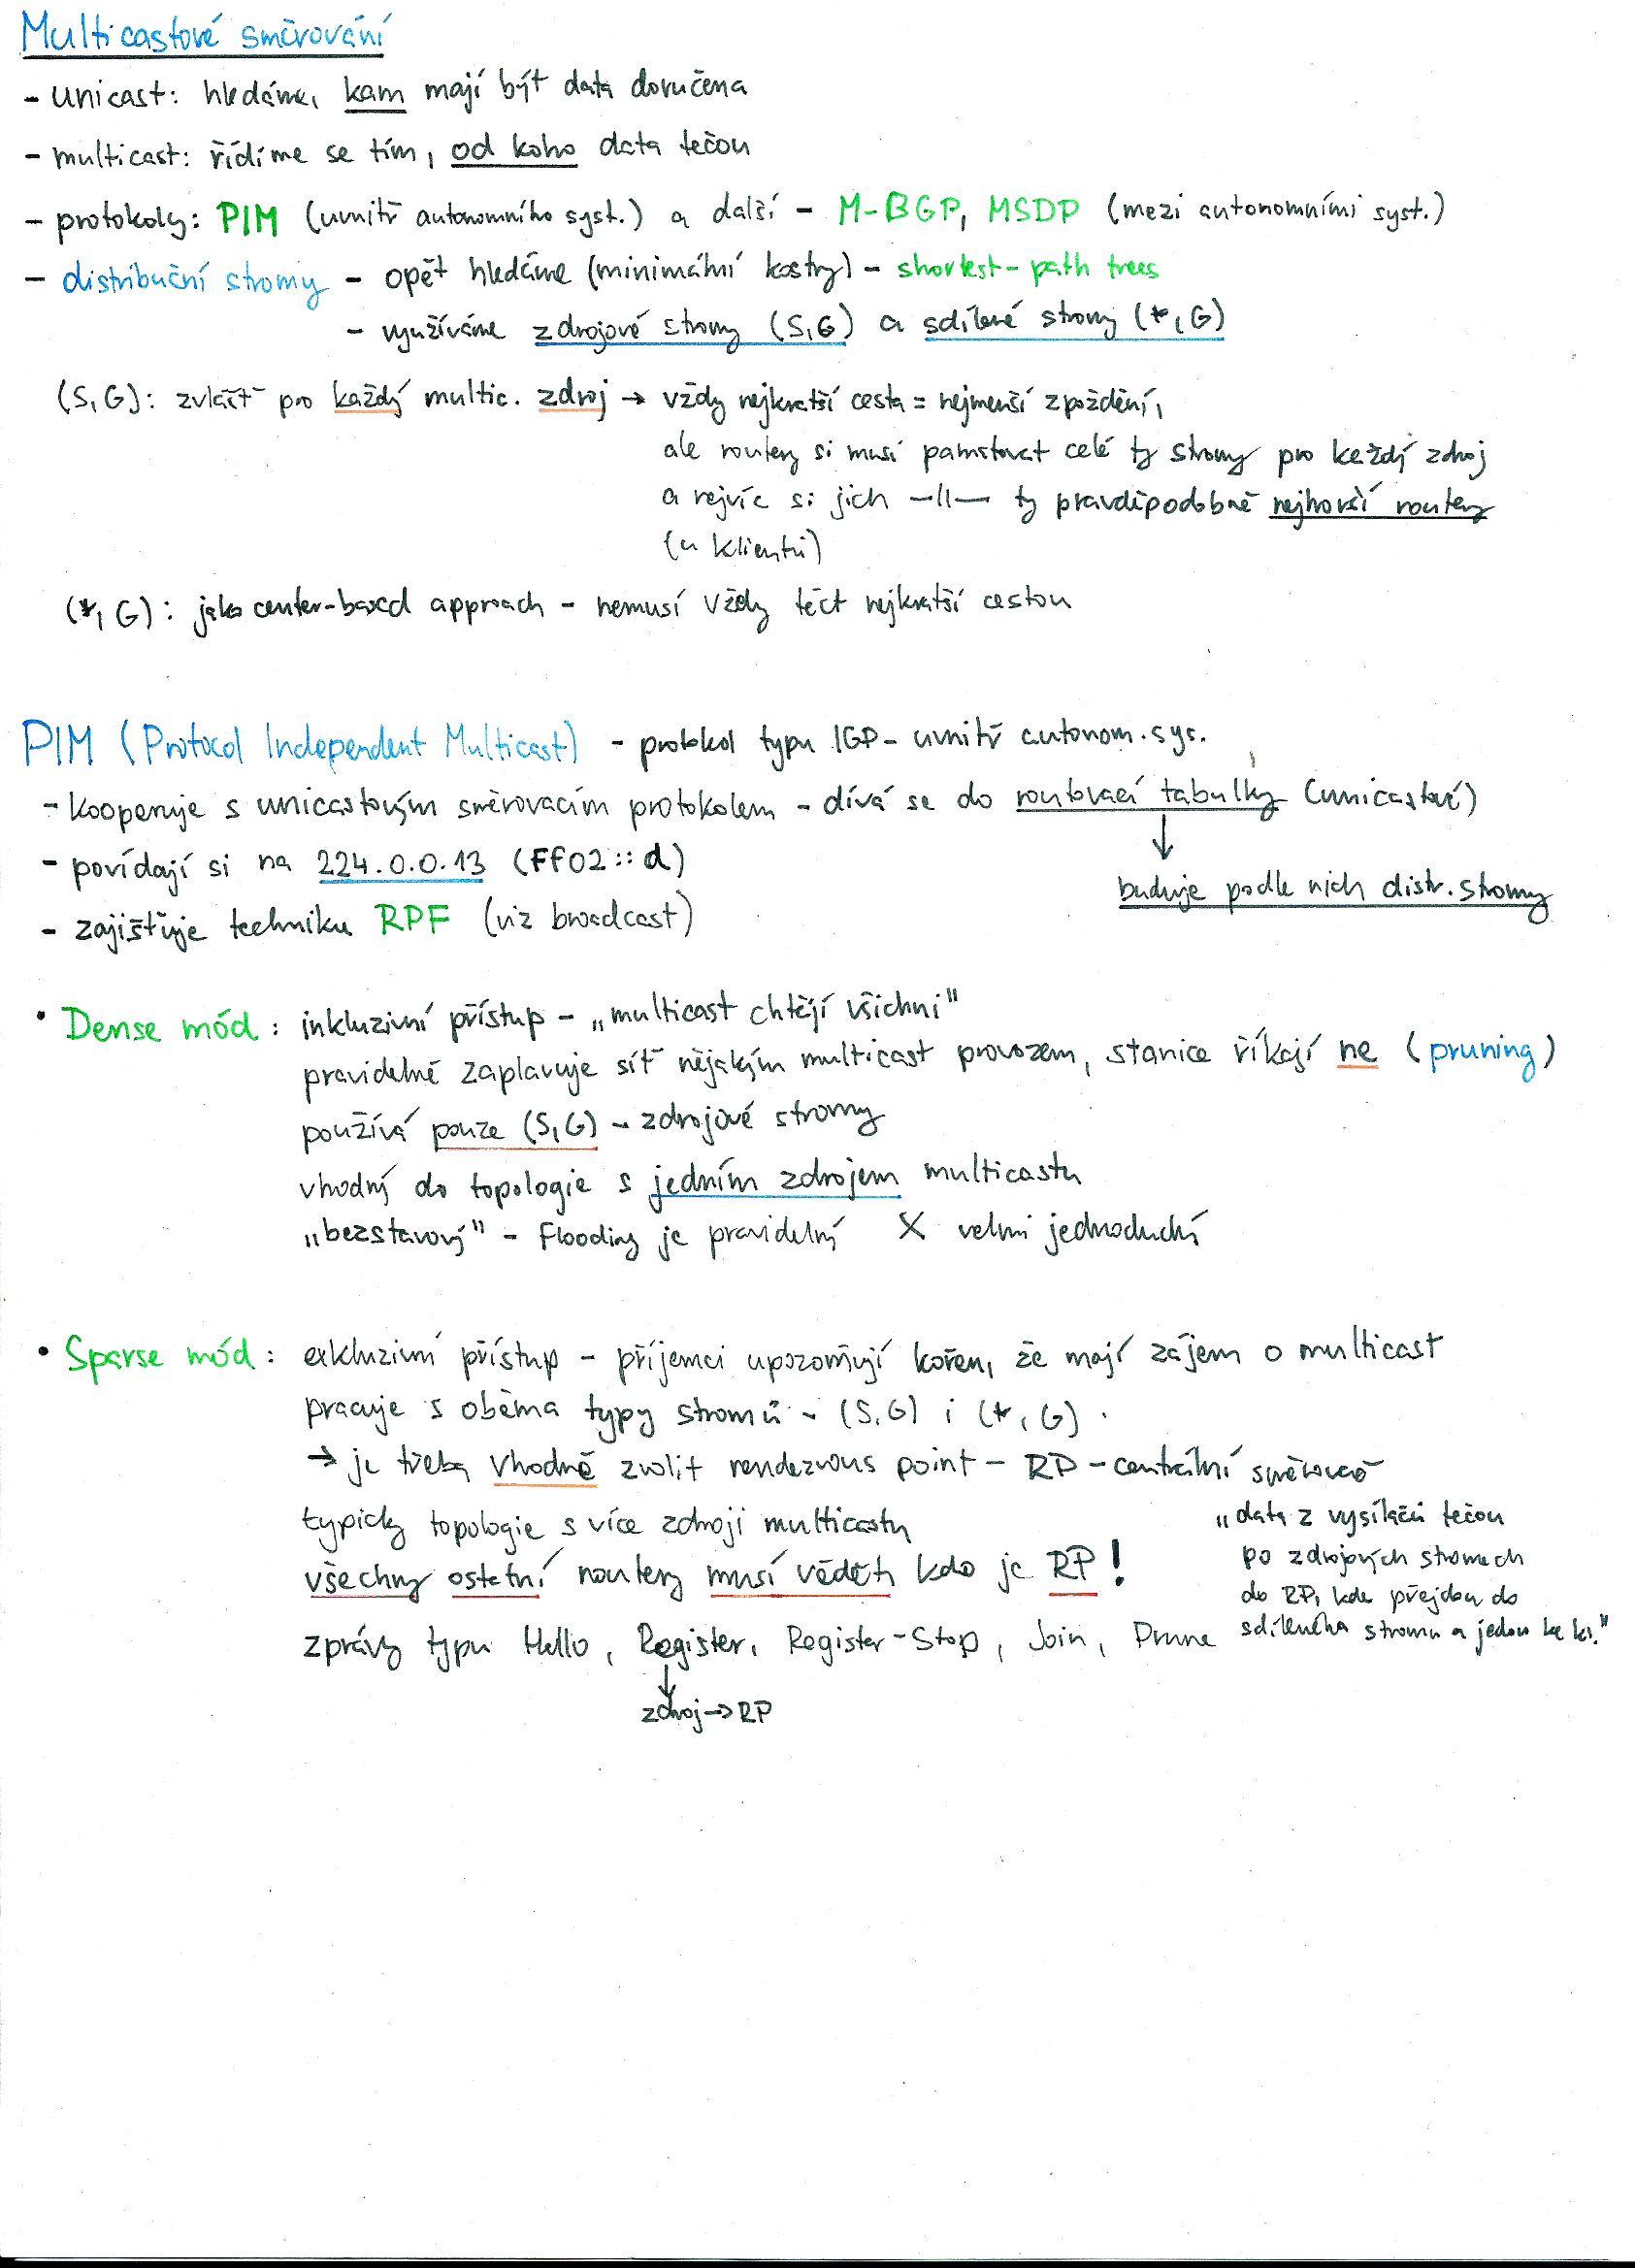 Multicastové směrování
- unicast: hledáme, kam mají být data doručena
- multicast: řídíme se tím, od koho data tečou
- protokoly: PIM (uvnitř autonomního syst.) a další - M-BGP, MSDP (mezi autonomními syst.)
- distribuční stromy - opět hledáme (minimální kostry) - shortest-path trees
- využíváme zdrojové stromy (S,G) a sdílené stromy (*,G)
(S,G): zvlášť pro každý multic. zdroj → vždy nejkratší cesta = nejmenší zpoždění,
ale routery si musí pamatovat celé ty stromy pro každý zdroj
a nejvíc si jich —||— ty pravděpodobně nejhorší routery
(u klientů)
(*,G): jako center-based approach - nemusí vždy téct nejkratší cestou
PIM (Protocol Independent Multicast) - protokol typu IGP - uvnitř autonom. sys.
- kooperuje s unicastovým směrovacím protokolem - dívá se do routovací tabulky (unicastové)
↓
- povídají si na 224.0.0.13 (FF02::d)
buduje podle nich distr. stromy
- zajišťuje techniku RPF (viz broadcast)
• Dense mód: inkluzivní přístup - „multicast chtějí všichni"
pravidelně zaplavuje síť nějakým multicast provozem, stanice říkají ne (pruning)
používá pouze (S,G) - zdrojové stromy
vhodný do topologie s jedním zdrojem multicastu
„bezstavový" - Flooding je pravidelný X velmi jednoduchý
• Sparse mód: exkluzivní přístup - příjemci upozorňují kořen, že mají zájem o multicast
pracuje s oběma typy stromů - (S,G) i (*,G)
→ je třeba vhodně zvolit rendezvous point - RP - centrální směrovač
typicky topologie s více zdroji multicastu
všechny ostatní routery musí vědět, kdo je RP!
zprávy typu Hello, Register, Register-Stop, Join, Prune
↓
zdroj → RP
„data z vysílačů tečou
po zdrojových stromech
do RP, kde přejdou do
sdíleného stromu a jedou ke kl."